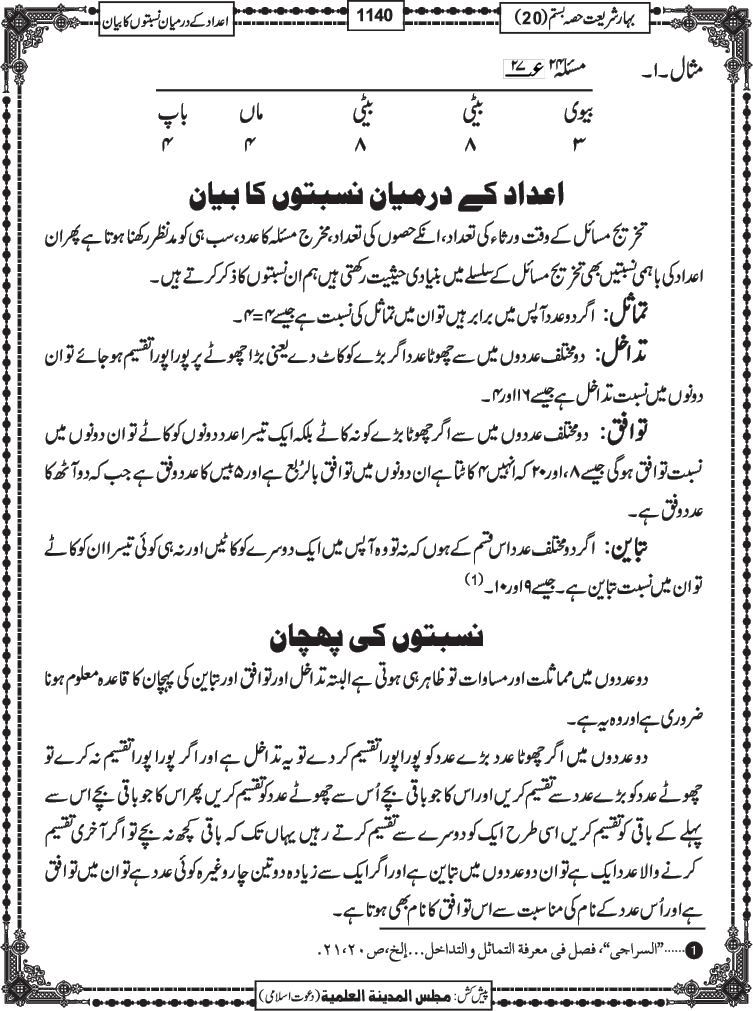 بہار شریعت حصہ بستم (20)
1140
اعداد کے درمیان نسبتوں کا بیان
مثال۔۱۔ مسئلہ ۲۴ عـــ ۲۷
بیوی بیٹی بیٹی ماں باپ
۳ ۸ ۸ ۴ ۴
اعداد کے درمیان نسبتوں کا بیان
تخریج مسائل کے وقت ورثاء کی تعداد، انکے حصوں کی تعداد، مخرج مسئلہ کا عدد، سب ہی کو مد نظر رکھنا ہوتا ہے پھر ان
اعداد کی باہمی نسبتیں بھی تخریج مسائل کے سلسلے میں بنیادی حیثیت رکھتی ہیں ہم ان نسبتوں کا ذکر کرتے ہیں۔
تماثل: اگر دو عدد آپس میں برابر ہیں تو ان میں تماثل کی نسبت ہے جیسے ۴=۴۔
تداخل: دو مختلف عددوں میں سے چھوٹا عدد اگر بڑے کو کاٹ دے یعنی بڑا چھوٹے پر پورا پورا تقسیم ہو جائے تو ان
دونوں میں نسبت تداخل ہے جیسے ۱۶ اور ۴۔
توافق: دو مختلف عددوں میں سے اگر چھوٹا بڑے کو نہ کاٹے بلکہ ایک تیسرا عدد دونوں کو کاٹے تو ان دونوں میں
نسبت توافق ہوگی جیسے ۸، اور ۲۰ کہ انہیں ۴ کاٹتا ہے ان دونوں میں توافق بالرُبع ہے اور ۵ بیس کا عدد وفق ہے جب کہ دو آٹھ کا
عدد وفق ہے۔
تباین: اگر دو مختلف عدد اس قسم کے ہوں کہ نہ تو وہ آپس میں ایک دوسرے کو کاٹیں اور نہ ہی کوئی تیسرا ان کو کاٹے
تو ان میں نسبت تباین ہے۔ جیسے ۹ اور ۱۰۔ (1)
نسبتوں کی پهچان
دو عددوں میں مماثلت اور مساوات تو ظاہر ہی ہوتی ہے البتہ تداخل اور توافق اور تباین کی پہچان کا قاعدہ معلوم ہونا
ضروری ہے اور وہ یہ ہے۔
دو عددوں میں اگر چھوٹا عدد بڑے عدد کو پورا پورا تقسیم کر دے تو یہ تداخل ہے اور اگر پورا پورا تقسیم نہ کرے تو
چھوٹے عدد کو بڑے عدد سے تقسیم کریں اور اس کا جو باقی بچے اُس سے چھوٹے عدد کو تقسیم کریں پھر اس کا جو باقی بچے اس سے
پہلے کے باقی کو تقسیم کریں اسی طرح ایک کو دوسرے سے تقسیم کرتے رہیں یہاں تک کہ باقی کچھ نہ بچے تو اگر آخری تقسیم
کرنے والا عدد ایک ہے تو ان دو عددوں میں تباین ہے اور اگر ایک سے زیادہ دو تین چار وغیرہ کوئی عدد ہے تو ان میں توافق
ہے اور اُس عدد کے نام کی مناسبت سے اس توافق کا نام بھی ہوتا ہے۔
1 ......"السراجی"، فصل فی معرفة التماثل والتداخل...إلخ،ص۲۰،۲۱.
پیش کش: مجلس المدینة العلمیة (دعوت اسلامی)